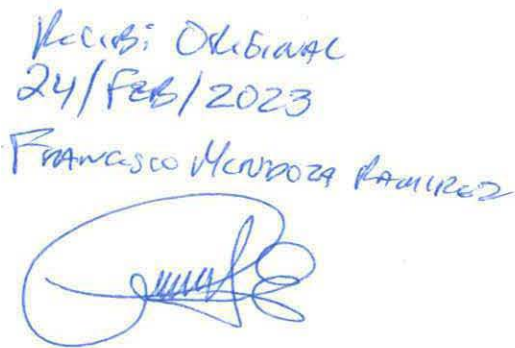 Recibi Original
24/FEB/2023
Francisco Mendoza Ramirez